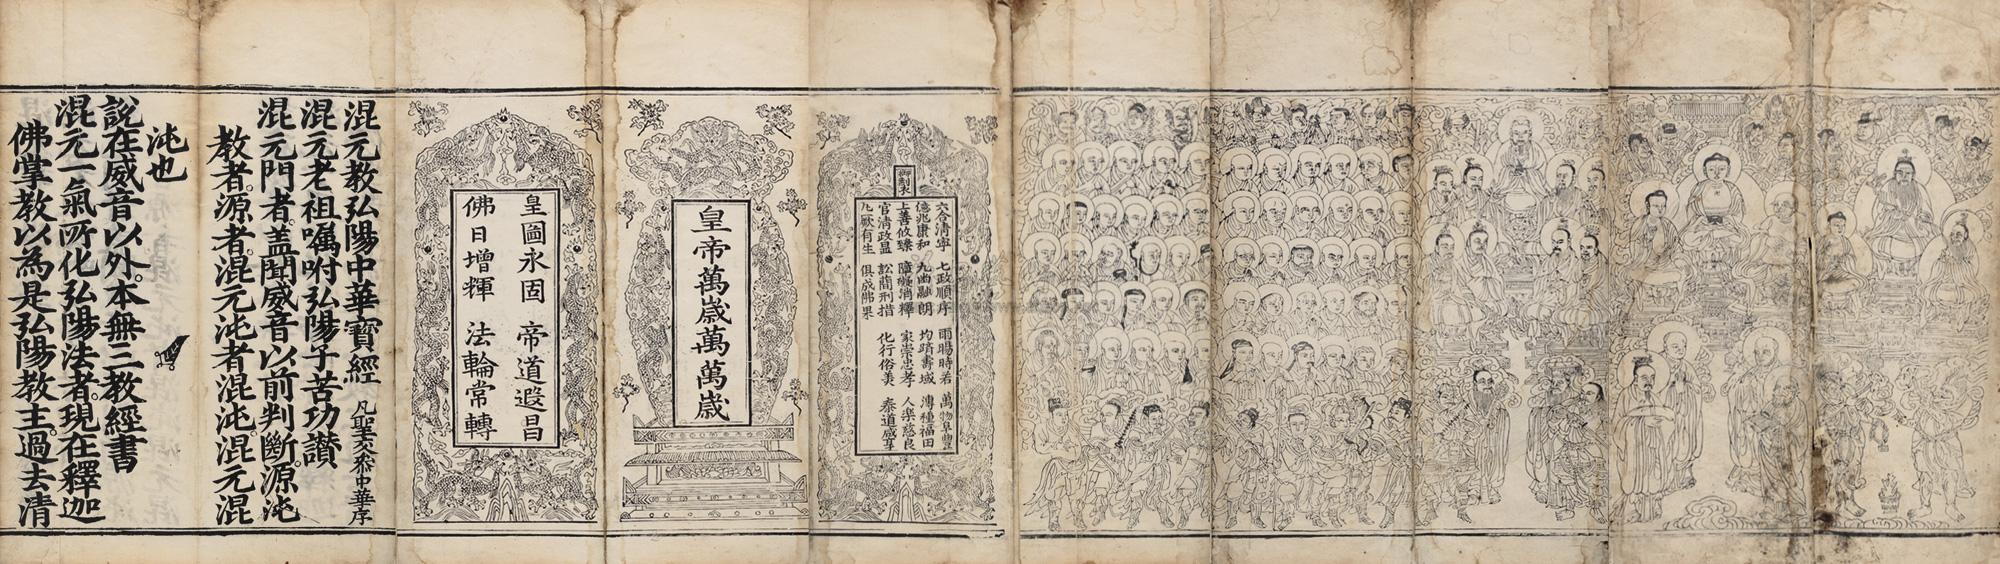 御制衣
六合清寧　七政順序　雨暘時若　萬物阜豊
億兆康和　九幽融朗　均躋壽域　溥種福田
上善攸臻　障礙消釋　家崇忠孝　人樂慈良
官清政显　訟簡刑措　化行俗美　泰道咸亨
凡厥有生　俱成佛果
皇帝萬歲萬萬歲
皇圖永固　帝道遐昌
佛日增輝　法輪常轉
混元教弘陽中華寶經　凡聖交叅中華序
混元老祖囑咐弘陽子苦功讃
混元門者盖聞威音以前判斷源沌
教者源者混元沌者混沌混元混
沌也
說在威音以外本無三教經書
混元一氣所化弘陽法者現在釋迦
佛掌教以為是弘陽教主過去清